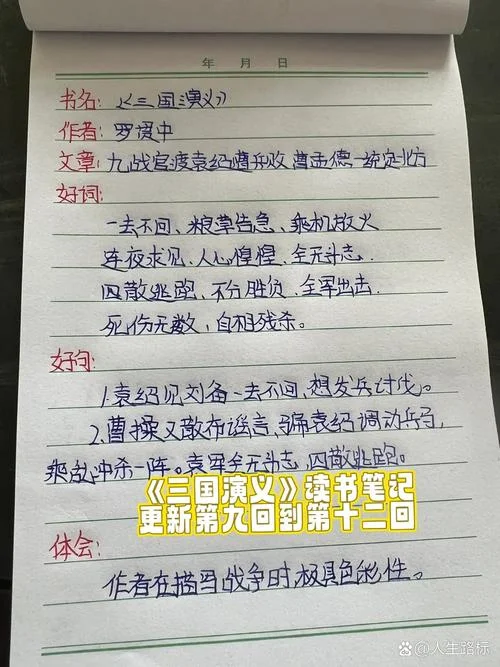 年 月 日
书名:《三国演义》
作者:罗贯中
文章:九战官渡袁绍曹兵败 曹孟德一统定北方
好词:
一去不回、粮草告急、乘机放火
连夜求见、人心惶惶、全无斗志
四散逃跑、不分胜负、全军出击
死伤无数,自相残杀。
好句:
1.袁绍见刘备一去不回,想发兵讨伐。
2.曹操又散布谣言,骗袁绍调动兵马,
乘乱冲杀一阵。袁军全无斗志,四散逃跑。
《三国演义》读书笔记
更新第九回到第十二回
体会:
作者在描写战争时,极具色彩性。
@人生路标